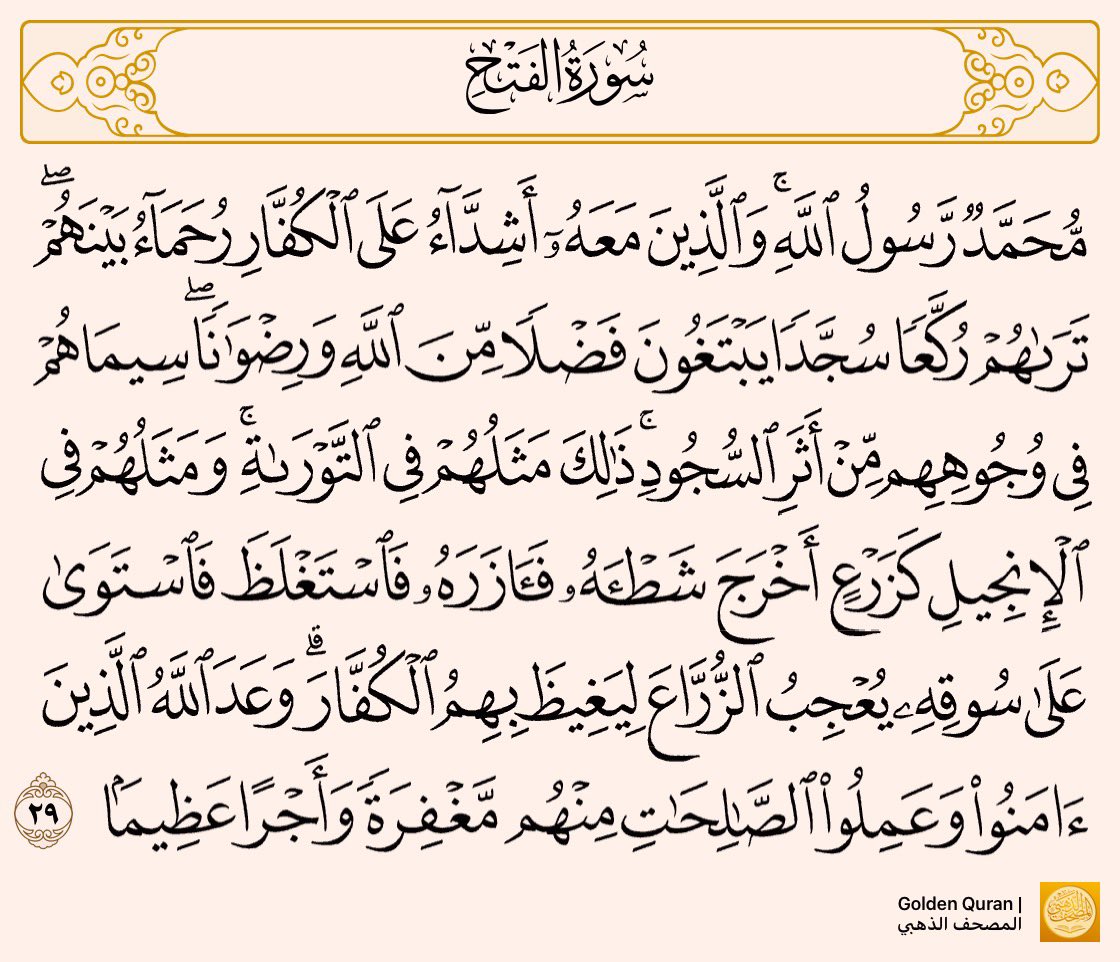 سُورَةُ الفَتۡحِ
مُّحَمَّدٞ رَّسُولُ ٱللَّهِۚ وَٱلَّذِينَ مَعَهُۥٓ أَشِدَّآءُ عَلَى ٱلۡكُفَّارِ رُحَمَآءُ بَيۡنَهُمۡۖ
تَرَىٰهُمۡ رُكَّعٗا سُجَّدٗا يَبۡتَغُونَ فَضۡلٗا مِّنَ ٱللَّهِ وَرِضۡوَٰنٗاۖ سِيمَاهُمۡ
فِي وُجُوهِهِم مِّنۡ أَثَرِ ٱلسُّجُودِۚ ذَٰلِكَ مَثَلُهُمۡ فِي ٱلتَّوۡرَىٰةِۚ وَمَثَلُهُمۡ فِي
ٱلۡإِنجِيلِ كَزَرۡعٍ أَخۡرَجَ شَطۡـَٔهُۥ فَـَٔازَرَهُۥ فَٱسۡتَغۡلَظَ فَٱسۡتَوَىٰ
عَلَىٰ سُوقِهِۦ يُعۡجِبُ ٱلزُّرَّاعَ لِيَغِيظَ بِهِمُ ٱلۡكُفَّارَۗ وَعَدَ ٱللَّهُ ٱلَّذِينَ
ءَامَنُواْ وَعَمِلُواْ ٱلصَّٰلِحَٰتِ مِنۡهُم مَّغۡفِرَةٗ وَأَجۡرًا عَظِيمَۢا ٢٩
Golden Quran |
المصحف الذهبي